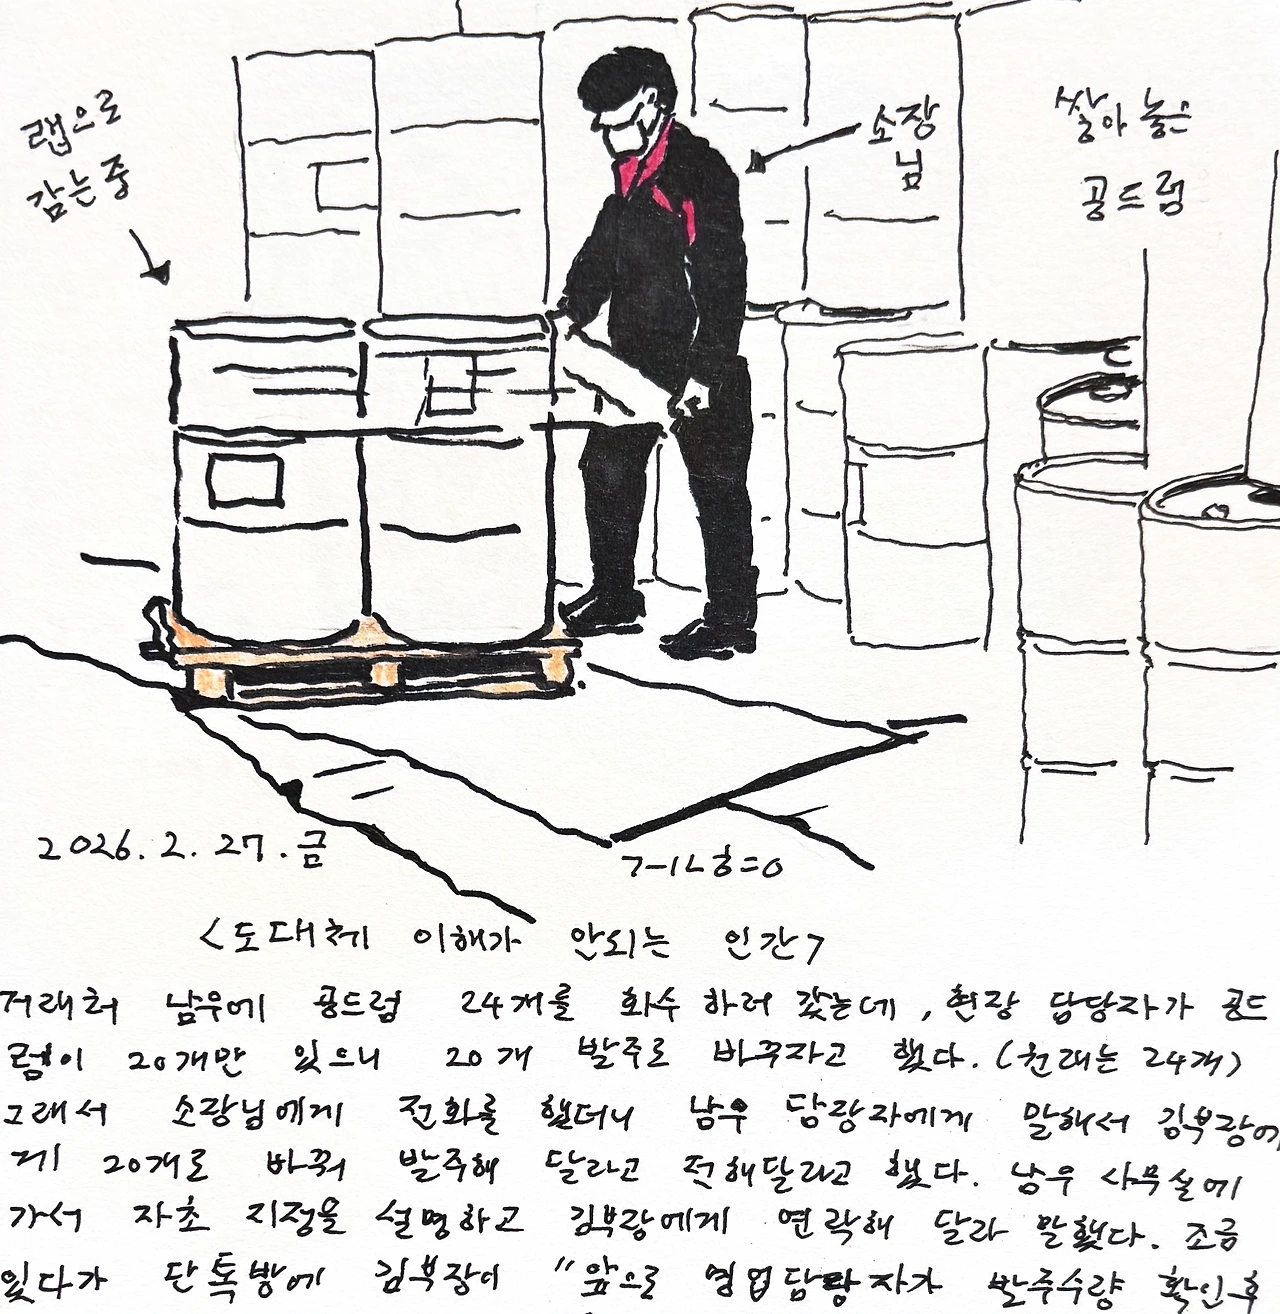 랩으로
감는중
소장
님
쌓아 놓은
공드럼
2026. 2. 27. 금
<도대체 이해가 안되는 인간>
거래처 남우에 공드럼 24개를 회수 하러 갔는데, 현장 담당자가 공드
럼이 20개만 있으니 20개 발주로 바꾸자고 했다. (원래는 24개)
그래서 소장님에게 전화를 했더니 남우 담당자에게 말해서 김부장에
게 20개로 바꿔 발주해 달라고 전해달라고 했다. 남우 사무실에
가서 자초 지정을 설명하고 김부장에게 연락해 달라 말했다. 조금
있다가 단톡방에 김부장이 "앞으로 영업담당자가 발주수량 확인후